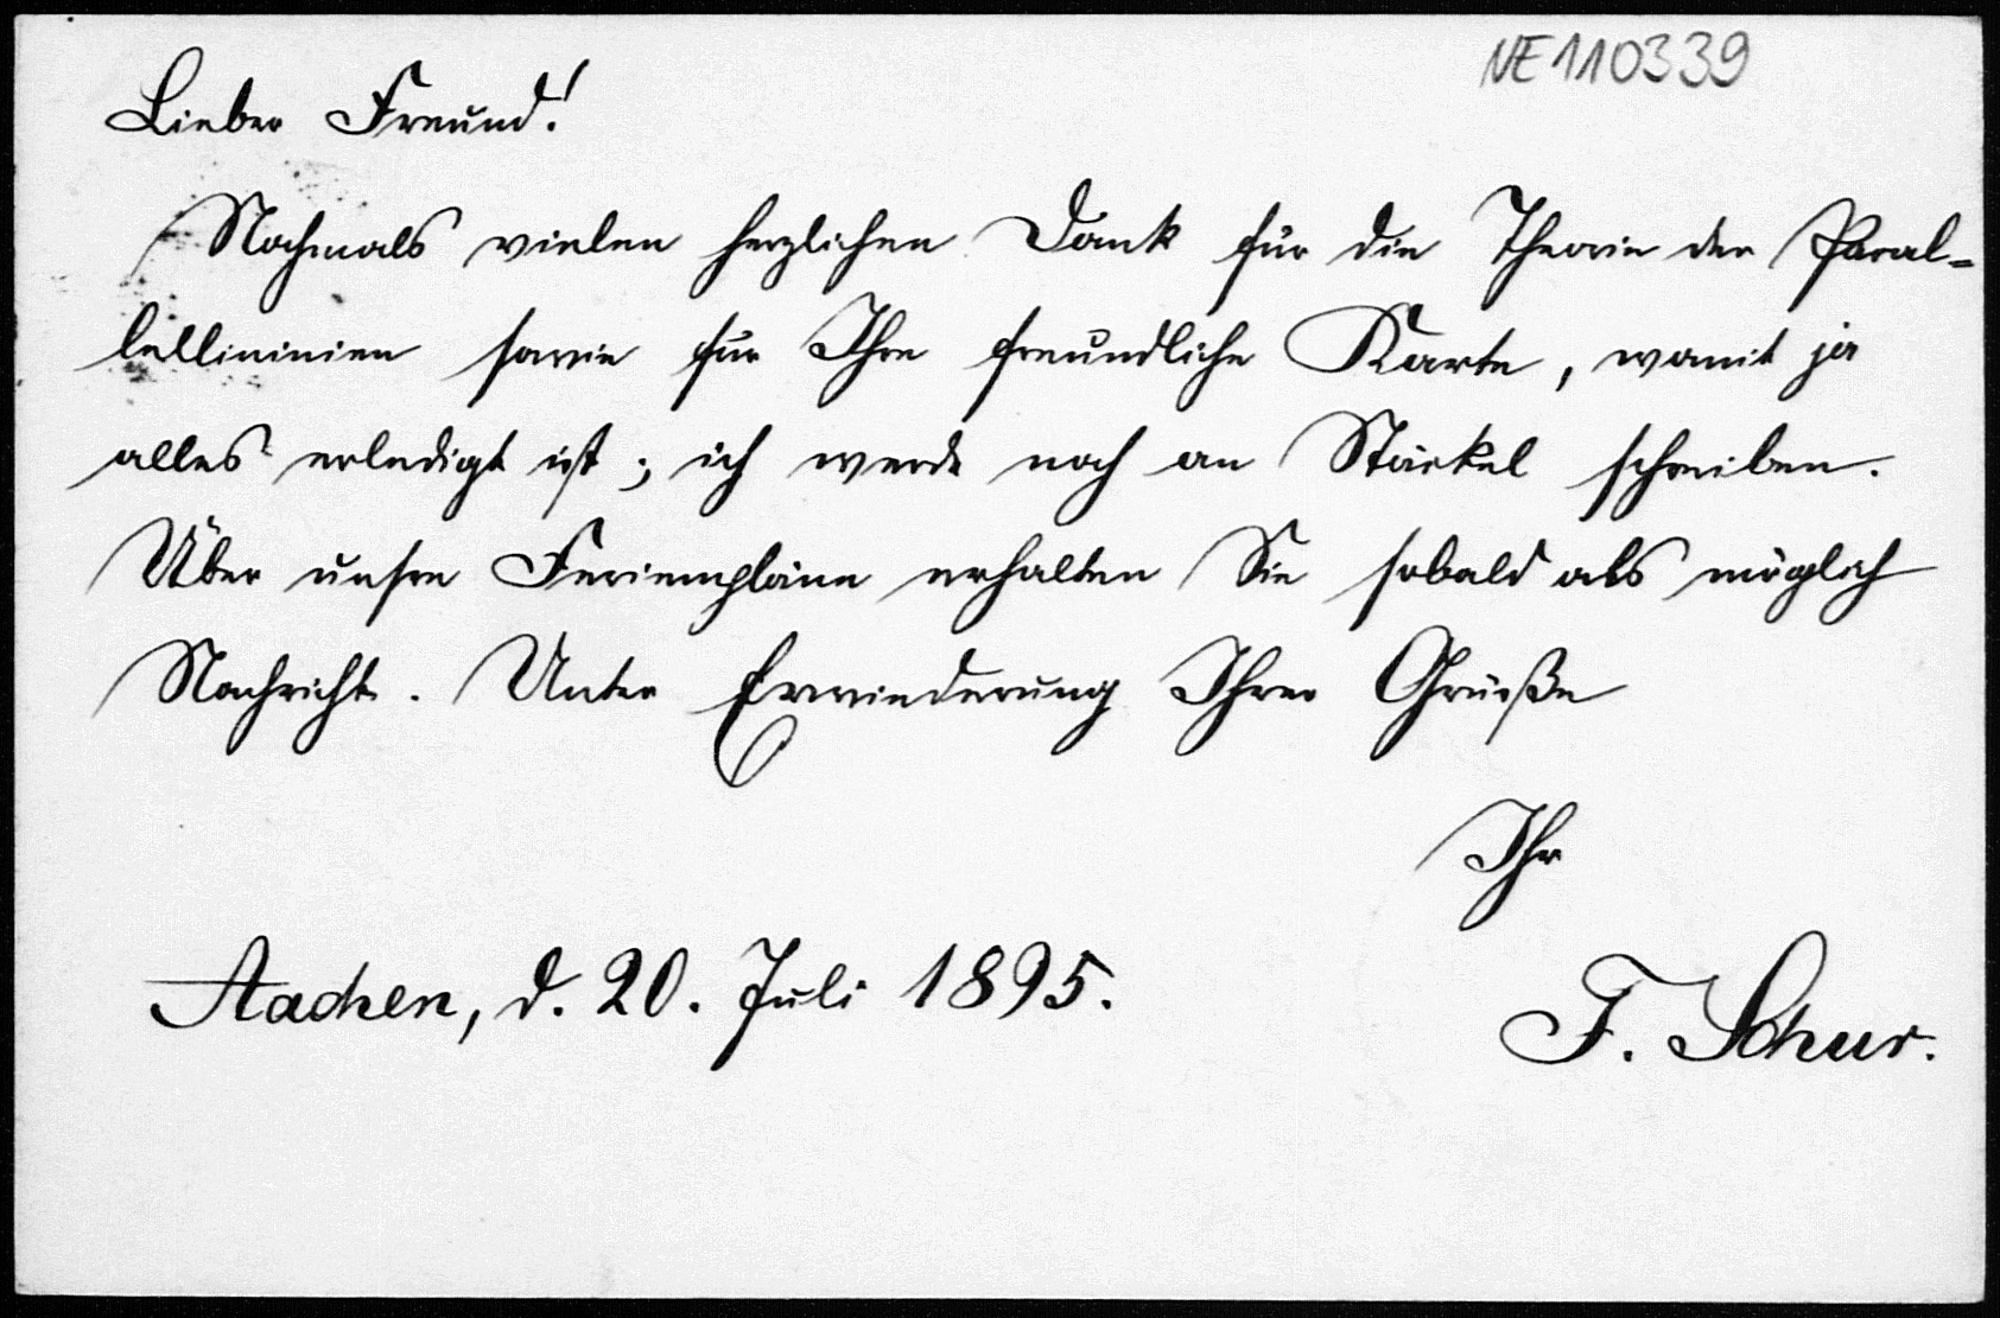 NE110339
Lieber Freund!
Nochmals vielen herzlichen Dank für die Theorie der Paral-
lellininien sowie für Ihre freundliche Karte, womit ja
alles erledigt ist; ich werde noch an Stäckel schreiben.
Über unsre Ferienpläne erhalten Sie sobald als möglich
Nachricht. Unter Erwiederung Ihrer Grüße
Ihr
Aachen, d. 20. Juli 1895.
F. Schur.